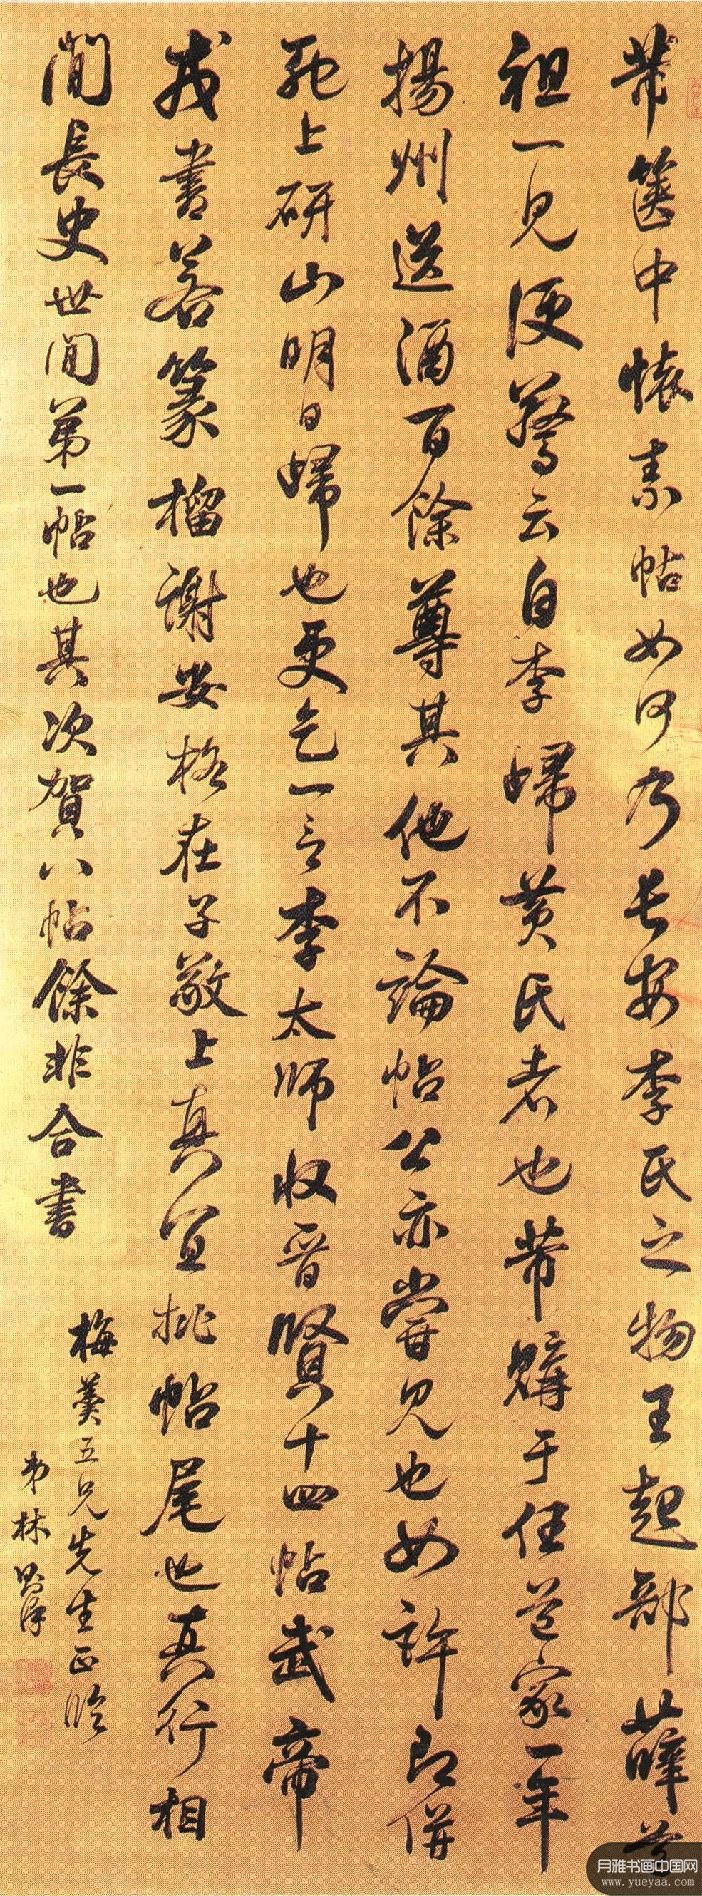 芾箧中懷素帖如何乃長安李氏之物王起部薛道
祖一見便驚云自李歸黄氏者也芾購于任道家一年
揚州送酒百餘尊其他不論帖公亦嘗見也如許即併
馳上研山明日歸也更乞一言李太師收晉賢十四帖武帝
戎書若篆榴謝安格在子敬上真宜批帖尾也真行相
間長史世間第一帖也其次賀八帖餘非合書
梅羹五兄先生正
弟林則徐
月雅书画中国网
www.yueyaa.com